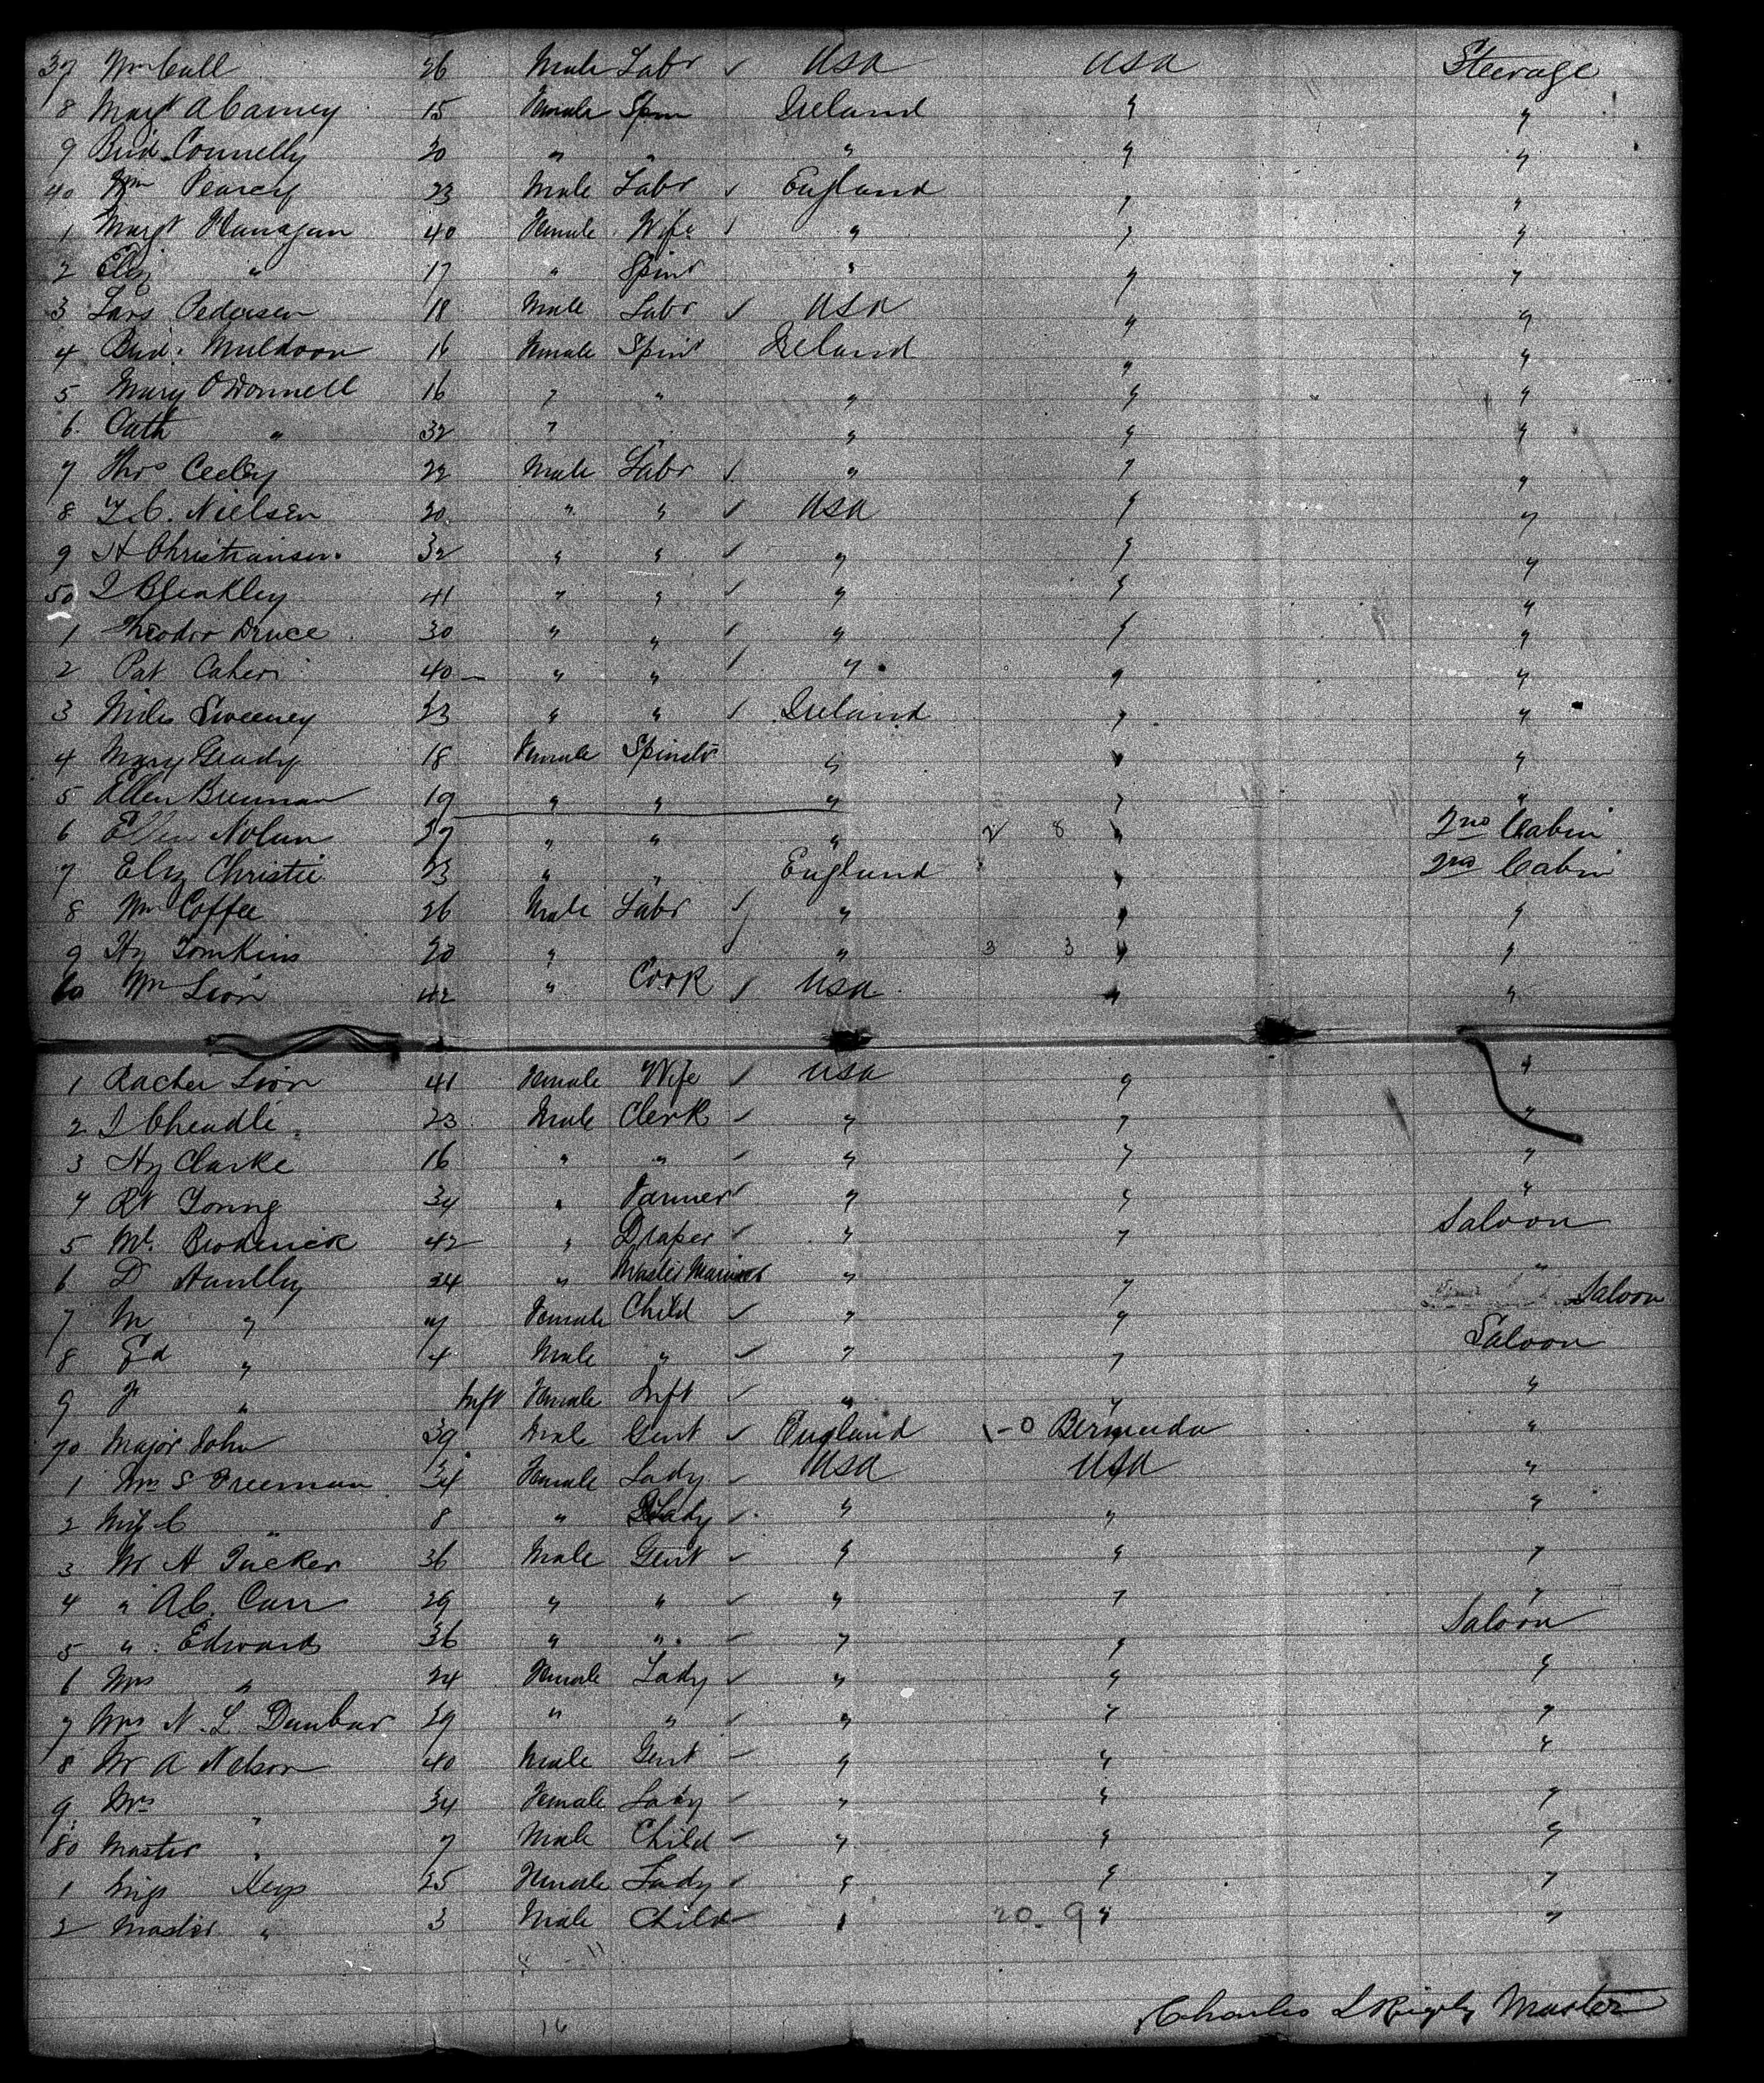 37 Wm Call 26 Male Labr ✓ USA USA Steerage
8 Margt A Carney 15 Female Spin Ireland " "
9 Brid. Connelly 20 " " " " "
40 Wm Pearcy 23 Male Labr ✓ England " "
1 Margt Flanagan 40 Female Wife ✓ " " "
2 Eliz " 17 " Spinr " " "
3 Lars Pedersen 18 Male Labr ✓ USA " "
4 Brid. Muldoon 16 Female Spinr Ireland " "
5 Mary O'Donnell 16 " " " " "
6 Cath " 32 " " " " "
7 Thos Ceeley 22 Male Labr ✓ " " "
8 C. Nielsen 30 " " ✓ USA " "
9 H Christiansen 32 " " ✓ " " "
50 J Bleakley 41 " " ✓ " " "
1 Theodor Druce 30 " " ✓ " " "
2 Pat Caheri 40 " " ✓ " " "
3 Miles Sweeney 23 " " ✓ Ireland " "
4 Mary Grady 18 Female Spinstr " " "
5 Ellen Brennan 19 " " " " "
6 Ellen Nolan 27 " " " 2 8 " 2nd Cabin
7 Eliz Christie 23 " " England " 2nd Cabin
8 Wm Coffee 26 Male Labr ✓ " " "
9 Hy Tomkins 20 " " 3 3 " "
60 Wm Lion 42 " Cook ✓ USA " "
1 Rachel Lion 41 Female Wife ✓ USA " "
2 J Cheadle 23 Male Clerk ✓ " " "
3 Hy Clarke 16 " " ✓ " " "
4 Rt Young 34 " Farmer ✓ " " "
5 Ml. Broderick 42 " Draper ✓ " " Saloon
6 D 34 " Master Mariner " " "
7 M " Female Child ✓ " " Saloon
8 Ed " 4 Male " ✓ " " Saloon
9 " Inft Female Inft ✓ " " "
70 Major John 39 Male Gent ✓ England - 0 Bermuda "
1 Mrs S Freeman 34 Female Lady ✓ USA USA "
2 Miss C " 8 " Lady ✓ " " "
3 Mr H Tucker 36 Male Gent ✓ " " "
4 " A.C. Carr 29 " " ✓ " " "
5 " Edwards 36 " " ✓ " " Saloon
6 Mrs " 24 Female Lady ✓ " " "
7 Mrs N. L. Dunbar 29 " " ✓ " " "
8 Mr A Nelson 40 Male Gent ✓ " " "
9 Mrs " 34 Female Lady ✓ " " "
80 Master " 7 Male Child ✓ " " "
1 Miss Keys 25 Female Lady ✓ " " "
2 Master " 3 Male Child ✓ " 20 - 9 " "
Charles L Rigby Master
16